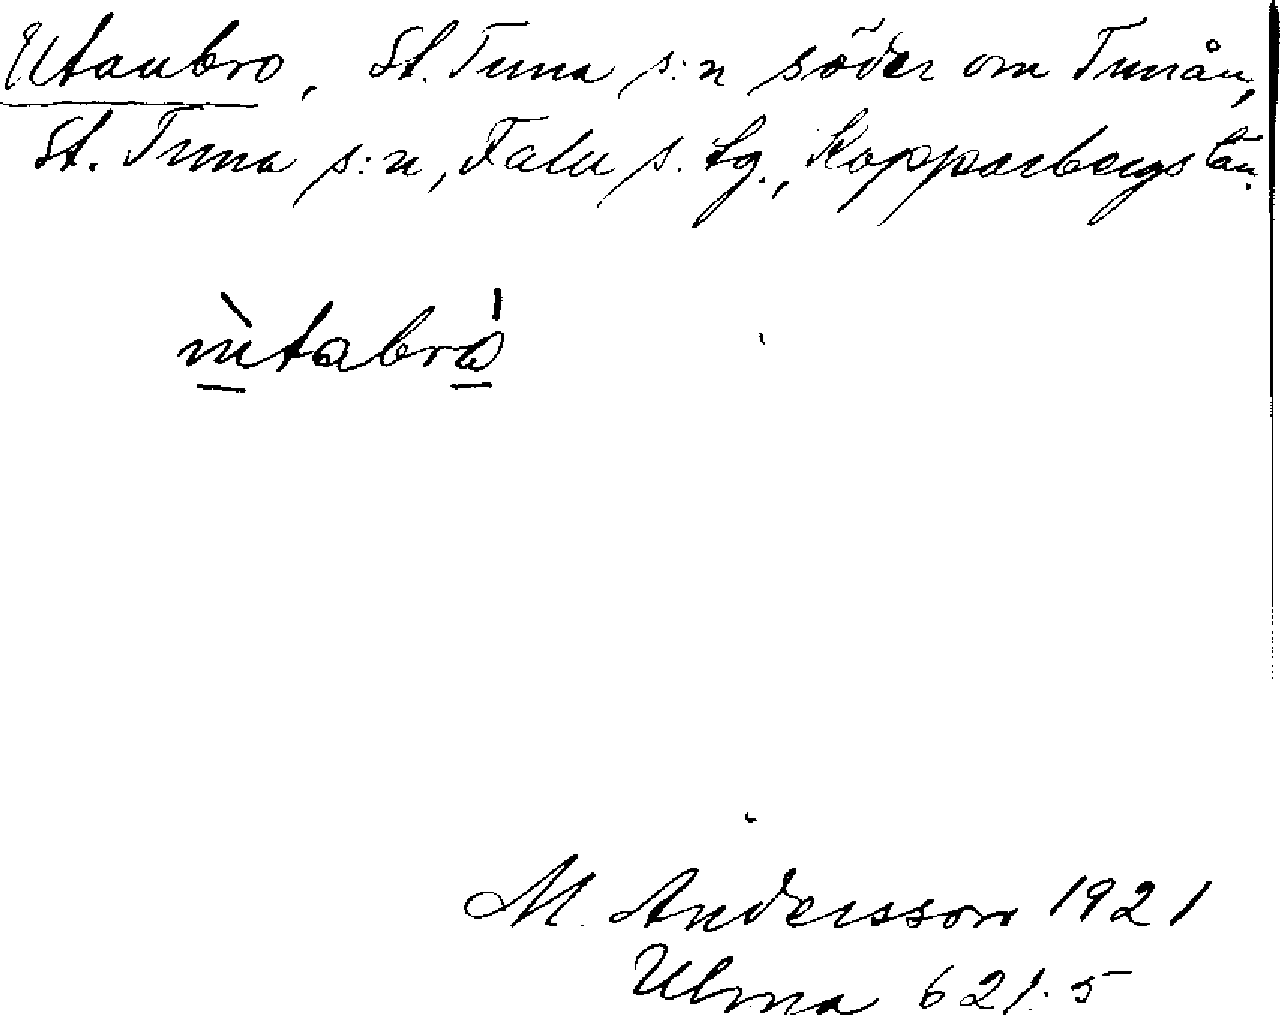 Utanbro, St. Tuna s:n söder om Tunån,
St. Tuna s:n, Falu s. tg., Kopparbergs län.
ùtabrò
M. Andersson 1921
Ulma 621:5